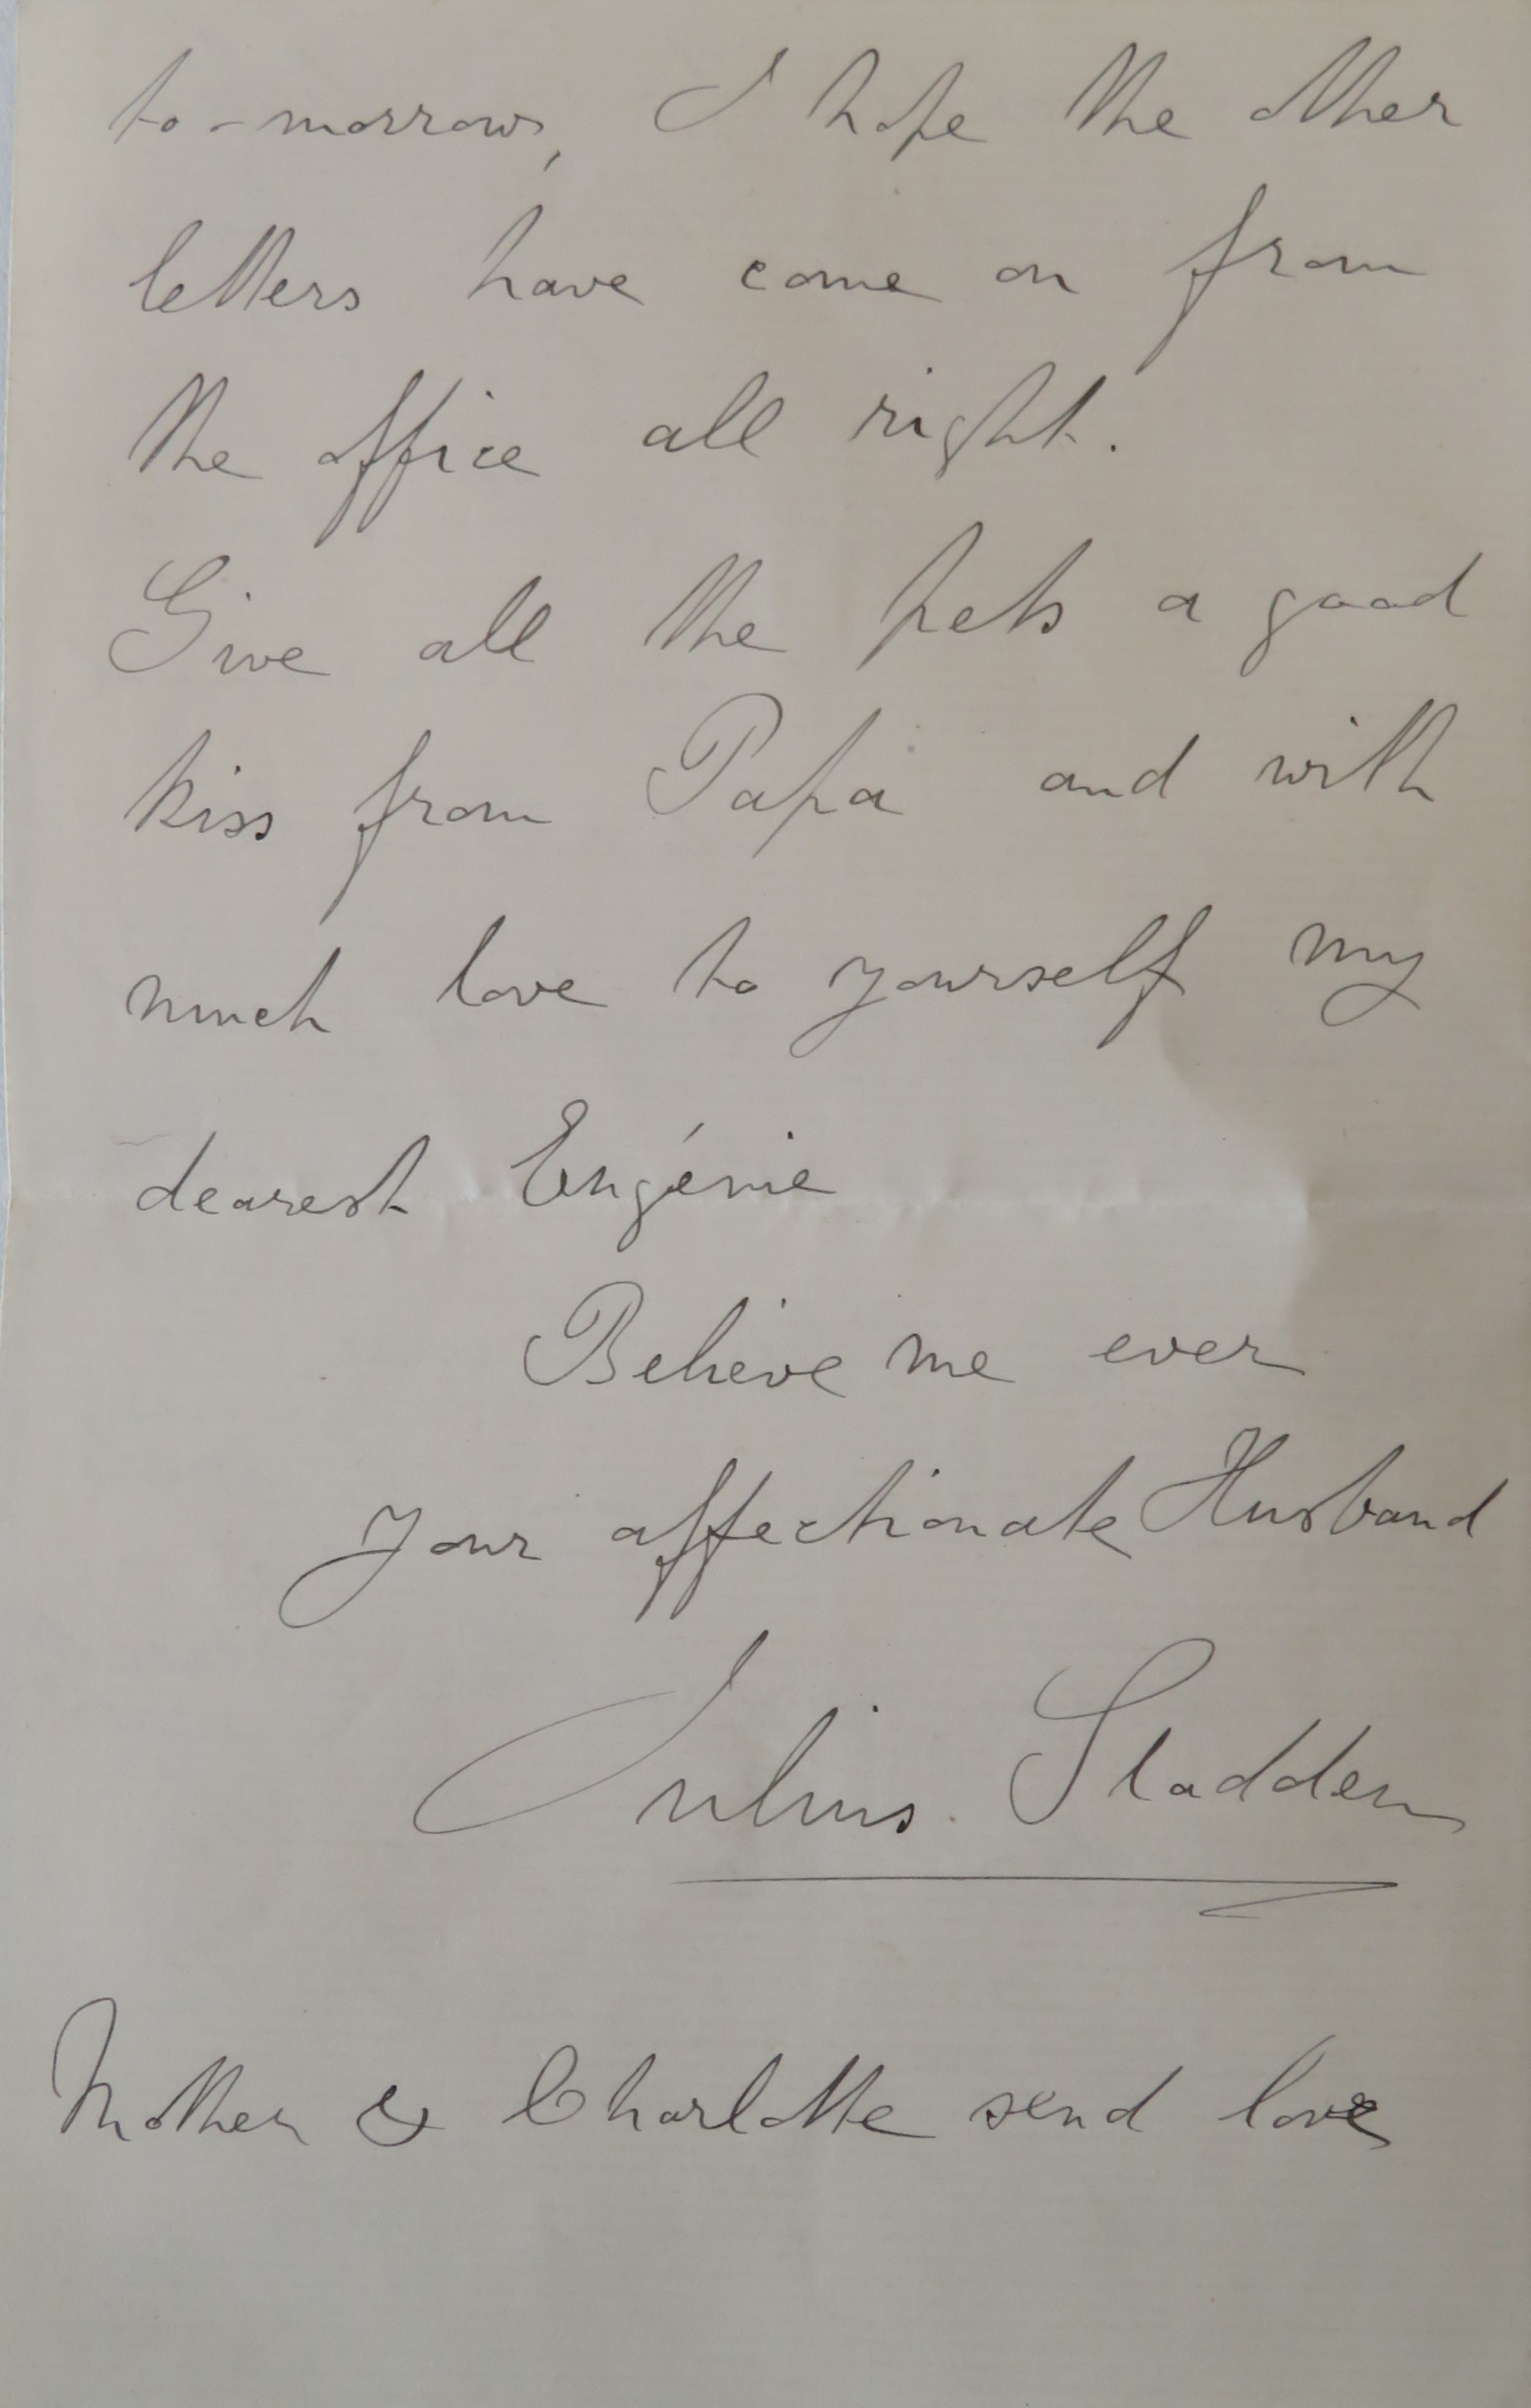 to-morrow, I hope the other
letters have come on from
the office all right.
Give all the pets a good
kiss from Papa and with
much love to yourself my
dearest Eugénie
Believe me ever
your affectionate Husband
Julius Sladden
Mother & Charlotte send love